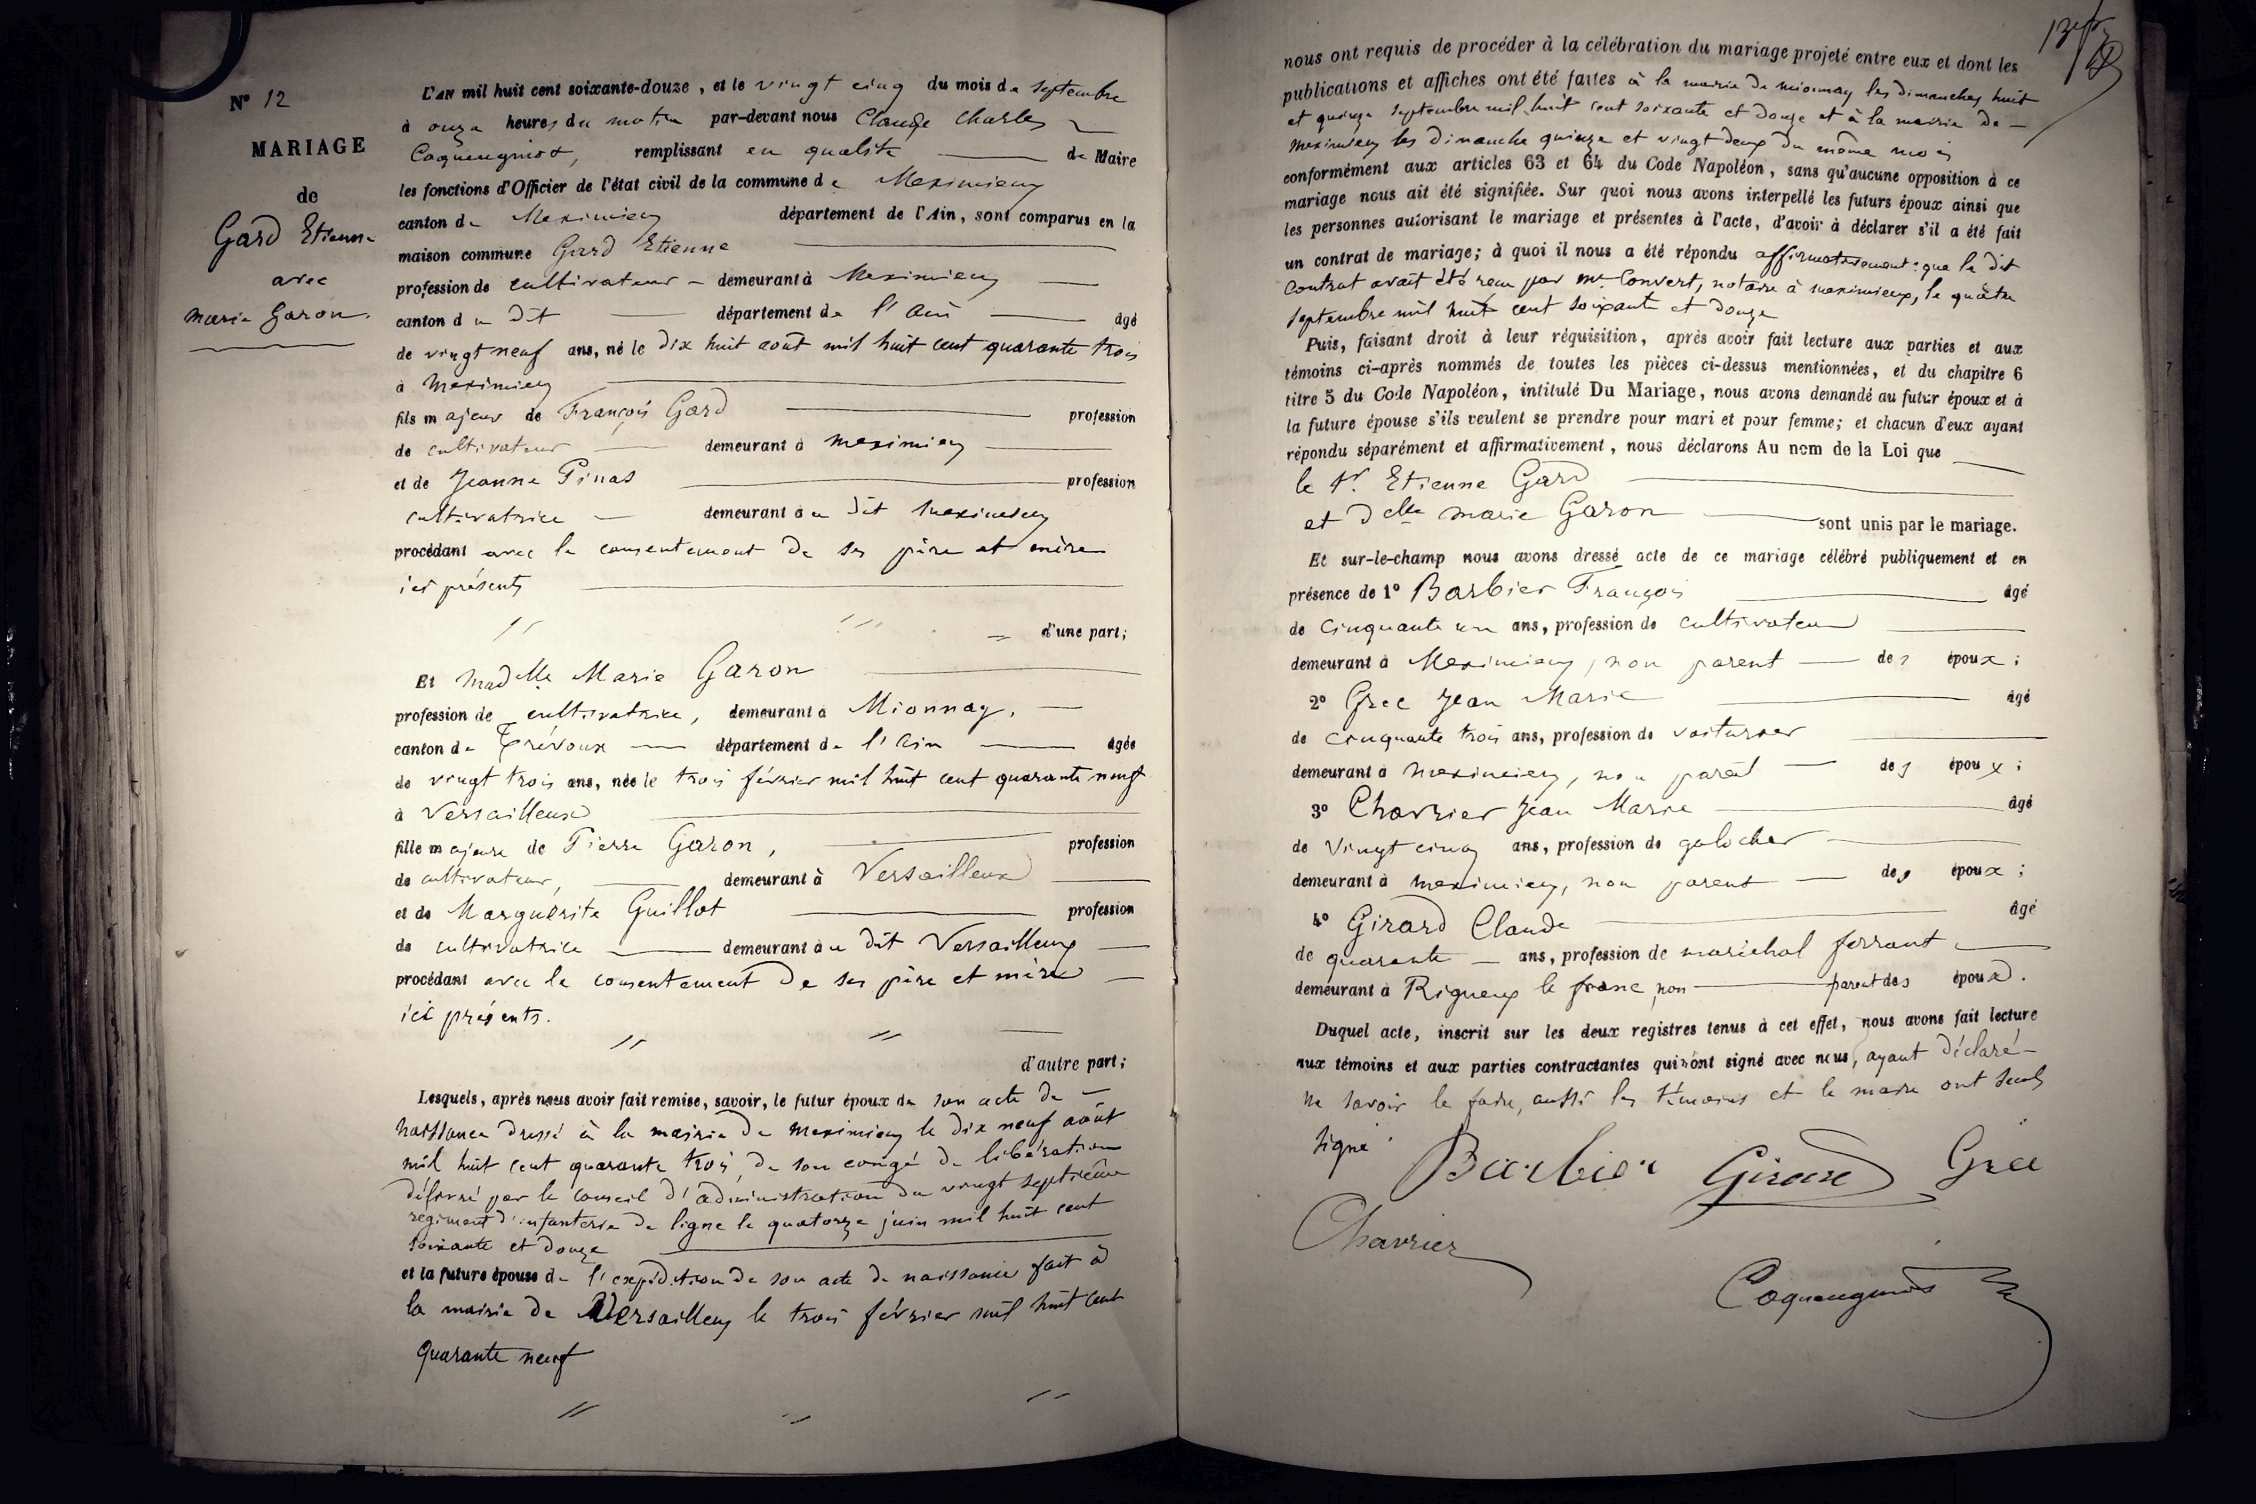 N° 12
MARIAGE
de
Gard Etienne
avec
Marie Garon.
L'AN mil huit cent soixante-douze, et le vingt cinq du mois de septembre
à onze heures du matin par-devant nous Claude Charles
Coqueugniot, remplissant en qualité de Maire
les fonctions d'Officier de l'état civil de la commune de Meximieux
canton de Meximieux département de l'Ain, sont comparus en la
maison commune Gard Etienne
profession de cultivateur demeurant à Meximieux
canton du dit département de l'Ain âgé
de vingt neuf ans, né le dix huit août mil huit cent quarante trois
à Meximieux
fils majeur de François Gard profession
de cultivateur demeurant à Meximieux
et de Jeanne Pinas profession
cultivatrice demeurant au dit Meximieux
procédant avec le consentement de ses père et mère
ici présents
d'une part;
Et Madelle Marie Garon
profession de cultivatrice, demeurant à Mionnay,
canton de Trévoux département de l'Ain âgée
de vingt trois ans, née le trois février mil huit cent quarante neuf
à Versailleux
fille majeure de Pierre Garon, profession
de cultivateur, demeurant à Versailleux
et de Marguerite Guillot profession
de cultivatrice demeurant au dit Versailleux
procédant avec le consentement de ses père et mère
ici présents.
d'autre part;
Lesquels, après nous avoir fait remise, savoir, le futur époux de son acte de
naissance dressé à la mairie de Meximieux le dix neuf août
mil huit cent quarante trois, de son congé de libération
délivré par le conseil d'administration du vingt septième
régiment d'infanterie de ligne le quatorze juin mil huit cent
soixante et douze
et la future épouse de l'expédition de son acte de naissance fait à
la mairie de Versailleux le trois février mil huit cent
quarante neuf
nous ont requis de procéder à la célébration du mariage projeté entre eux et dont les
publications et affiches ont été faites à la mairie de Mionnay les dimanches huit
et quinze septembre mil huit cent soixante et douze et à la mairie de
Meximieux les dimanche quinze et vingt deux du même mois
conformément aux articles 63 et 64 du Code Napoléon, sans qu'aucune opposition à ce
mariage nous ait été signifiée. Sur quoi nous avons interpellé les futurs époux ainsi que
les personnes autorisant le mariage et présentes à l'acte, d'avoir à déclarer s'il a été fait
un contrat de mariage; à quoi il nous a été répondu affirmativement: que le dit
contrat avait été reçu par Me Convert, notaire à Meximieux, le quatre
septembre mil huit cent soixante et douze
Puis, faisant droit à leur réquisition, après avoir fait lecture aux parties et aux
témoins ci-après nommés de toutes les pièces ci-dessus mentionnées, et du chapitre 6
titre 5 du Code Napoléon, intitulé Du Mariage, nous avons demandé au futur époux et à
la future épouse s'ils veulent se prendre pour mari et pour femme; et chacun d'eux ayant
répondu séparément et affirmativement, nous déclarons Au nom de la Loi que
le Sr. Etienne Gard
et Delle Marie Garon sont unis par le mariage.
Et sur-le-champ nous avons dressé acte de ce mariage célébré publiquement et en
présence de 1° Barbier François âgé
de cinquante un ans, profession de cultivateur
demeurant à Meximieux, non parent des époux;
2° Gree Jean Marie âgé
de cinquante trois ans, profession de voiturier
demeurant à Meximieux, non parent des époux;
3° Chavrier Jean Marie âgé
de vingt cinq ans, profession de galocher
demeurant à Meximieux, non parent des époux;
4° Girard Claude âgé
de quarante ans, profession de maréchal ferrant
demeurant à Rigneux le franc, non parent des époux.
Duquel acte, inscrit sur les deux registres tenus à cet effet, nous avons fait lecture
aux témoins et aux parties contractantes qui n'ont signé avec nous, ayant déclaré
ne savoir le faire, aussi les témoins et le maire ont seuls
signé.
Barbier Girard Gree
Chavrier
Coqueugniot